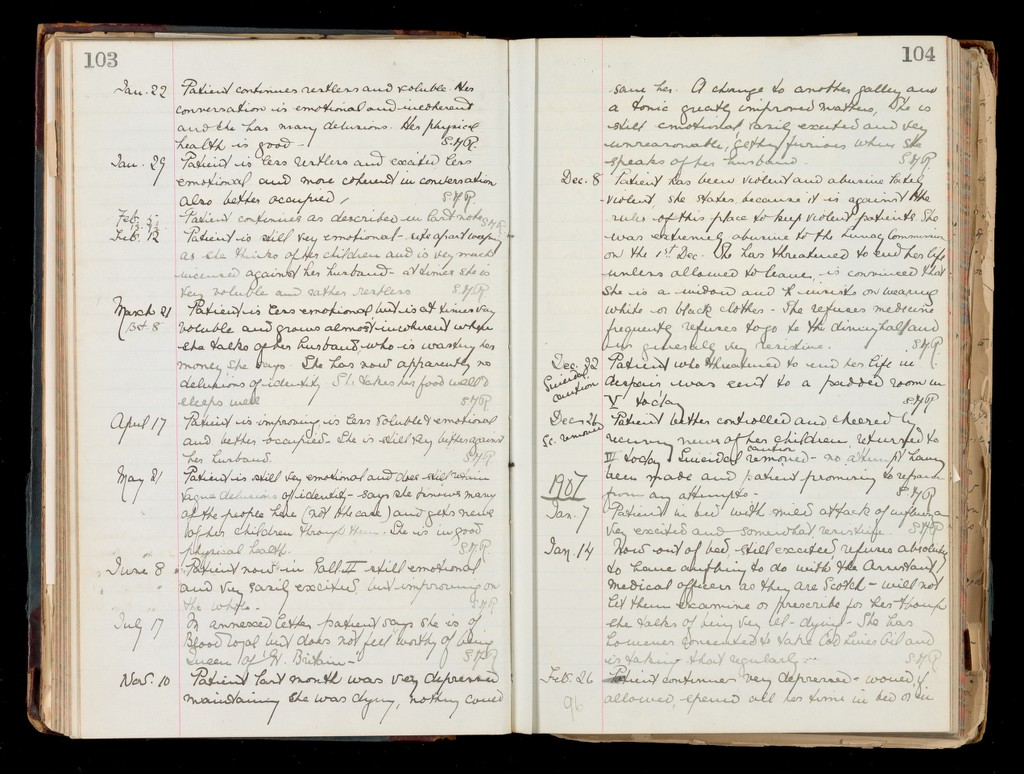 103
Jan. 22 Patient continues restless and voluble. Her
conversation is emotional and incoherent
and she has many delusions. Her physical
health is good -
Jan. 29 Patient is less restless and excited less
emotional and more coherent in conversation
also better occupied,
Feb. 5 Patient continues as described in last note
Feb. 12 Patient is still very emotional - sits apart weeping
as she thinks of her children and is very much
incensed against her husband - at times she is
very voluble and rather restless
March 21 Patient is less emotional but is at times very
voluble and grows almost incoherent when
she talks of her husband, who is wasting her
money she says. She has now apparently no
delusions of identity. She takes her food well &
sleeps well
April 17 Patient is improving is less voluble & emotional
and better occupied. She is still very bitter against
her husband.
May 21 Patient is still very emotional and does still retain
vague delusions of identity - says she knows many
of the people here (not the case) and gets news
of her children through them. She is in good
physical health.
June 8 Patient now in Gall III still emotional
and very easily excited, but improving on
the whole -
July 17 In annexed letter patient says she is of
Blood royal but does not feel worthy of being
Queen of Gt. Britain -
Nov. 10 Patient last month was very depressed
maintaining she was dying, nothing could
104
save her. A change to another gallery and
a tonic greatly improved matters, She is
still emotional easily excited and very
unreasonable, getting furious when she
speaks of her husband.
Dec. 8 Patient has been violent and abusive lately
violent, she states, because it is against the
rules of this place to keep violent patients. She
was extremely abusive to the Lunacy Commissioners
on the 1st Dec. She has threatened to end her life
unless allowed to leave, is convinced that
she is a widow and insists on wearing
white or black clothes - She refuses medicine
frequently refuses to go to the dining hall and
is generally very resistive.
Dec. 22 Patient who threatened to end her life in
Suicidal caution
despair was sent to a padded room in
V today
Dec 26 Patient better controlled and cheered by
Sc. removed
receiving news of her children, returned to
III today Suicidal caution removed - no attempt having
been made and patient promising to refrain
from any attempts -
1907
Jan. 7 Patient in bed with mild attack of influenza
very excited and somewhat resistive.
Jan. 14 Now out of bed still excited, refuses absolutely
to have anything to do with the Assistant
medical officers as they are Scotch - will not
let them examine or prescribe for her though
she talks of being very ill - dying - She has
however consented to take Cod Liver Oil and
is taking that regularly -
Feb. 26 Patient continues very depressed - would, if
allowed, spend all her time in bed or in
96